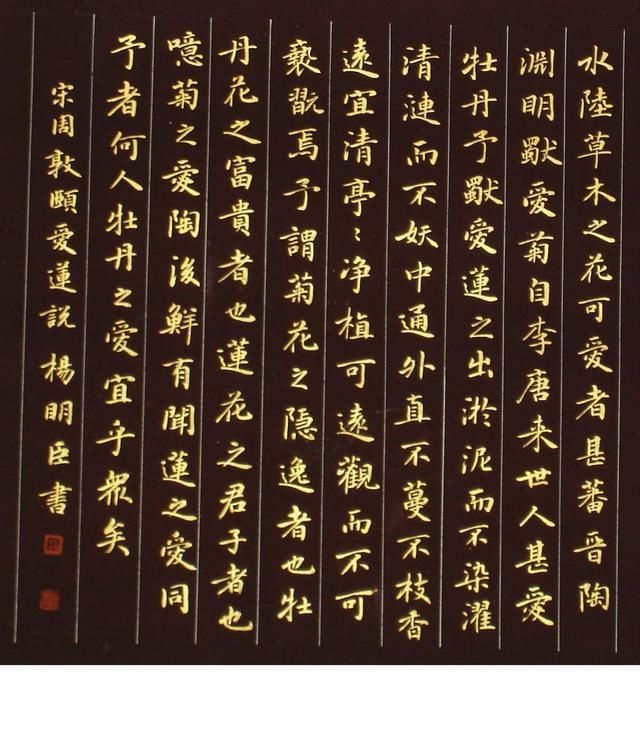 水陸草木之花可愛者甚蕃晉陶
淵明獸愛菊自李唐来世人甚愛
牡丹予獸愛蓮之出淤泥而不染濯
清漣而不妖中通外直不蔓不枝香
遠宜清亭〻净植可遠觀而不可
褻翫焉予謂菊花之隐逸者也牡
丹花之富貴者也蓮花之君子者也
噫菊之愛陶後鮮有聞蓮之愛同
予者何人牡丹之愛宜乎眾矣
宋周敦頤愛蓮說 楊明臣書